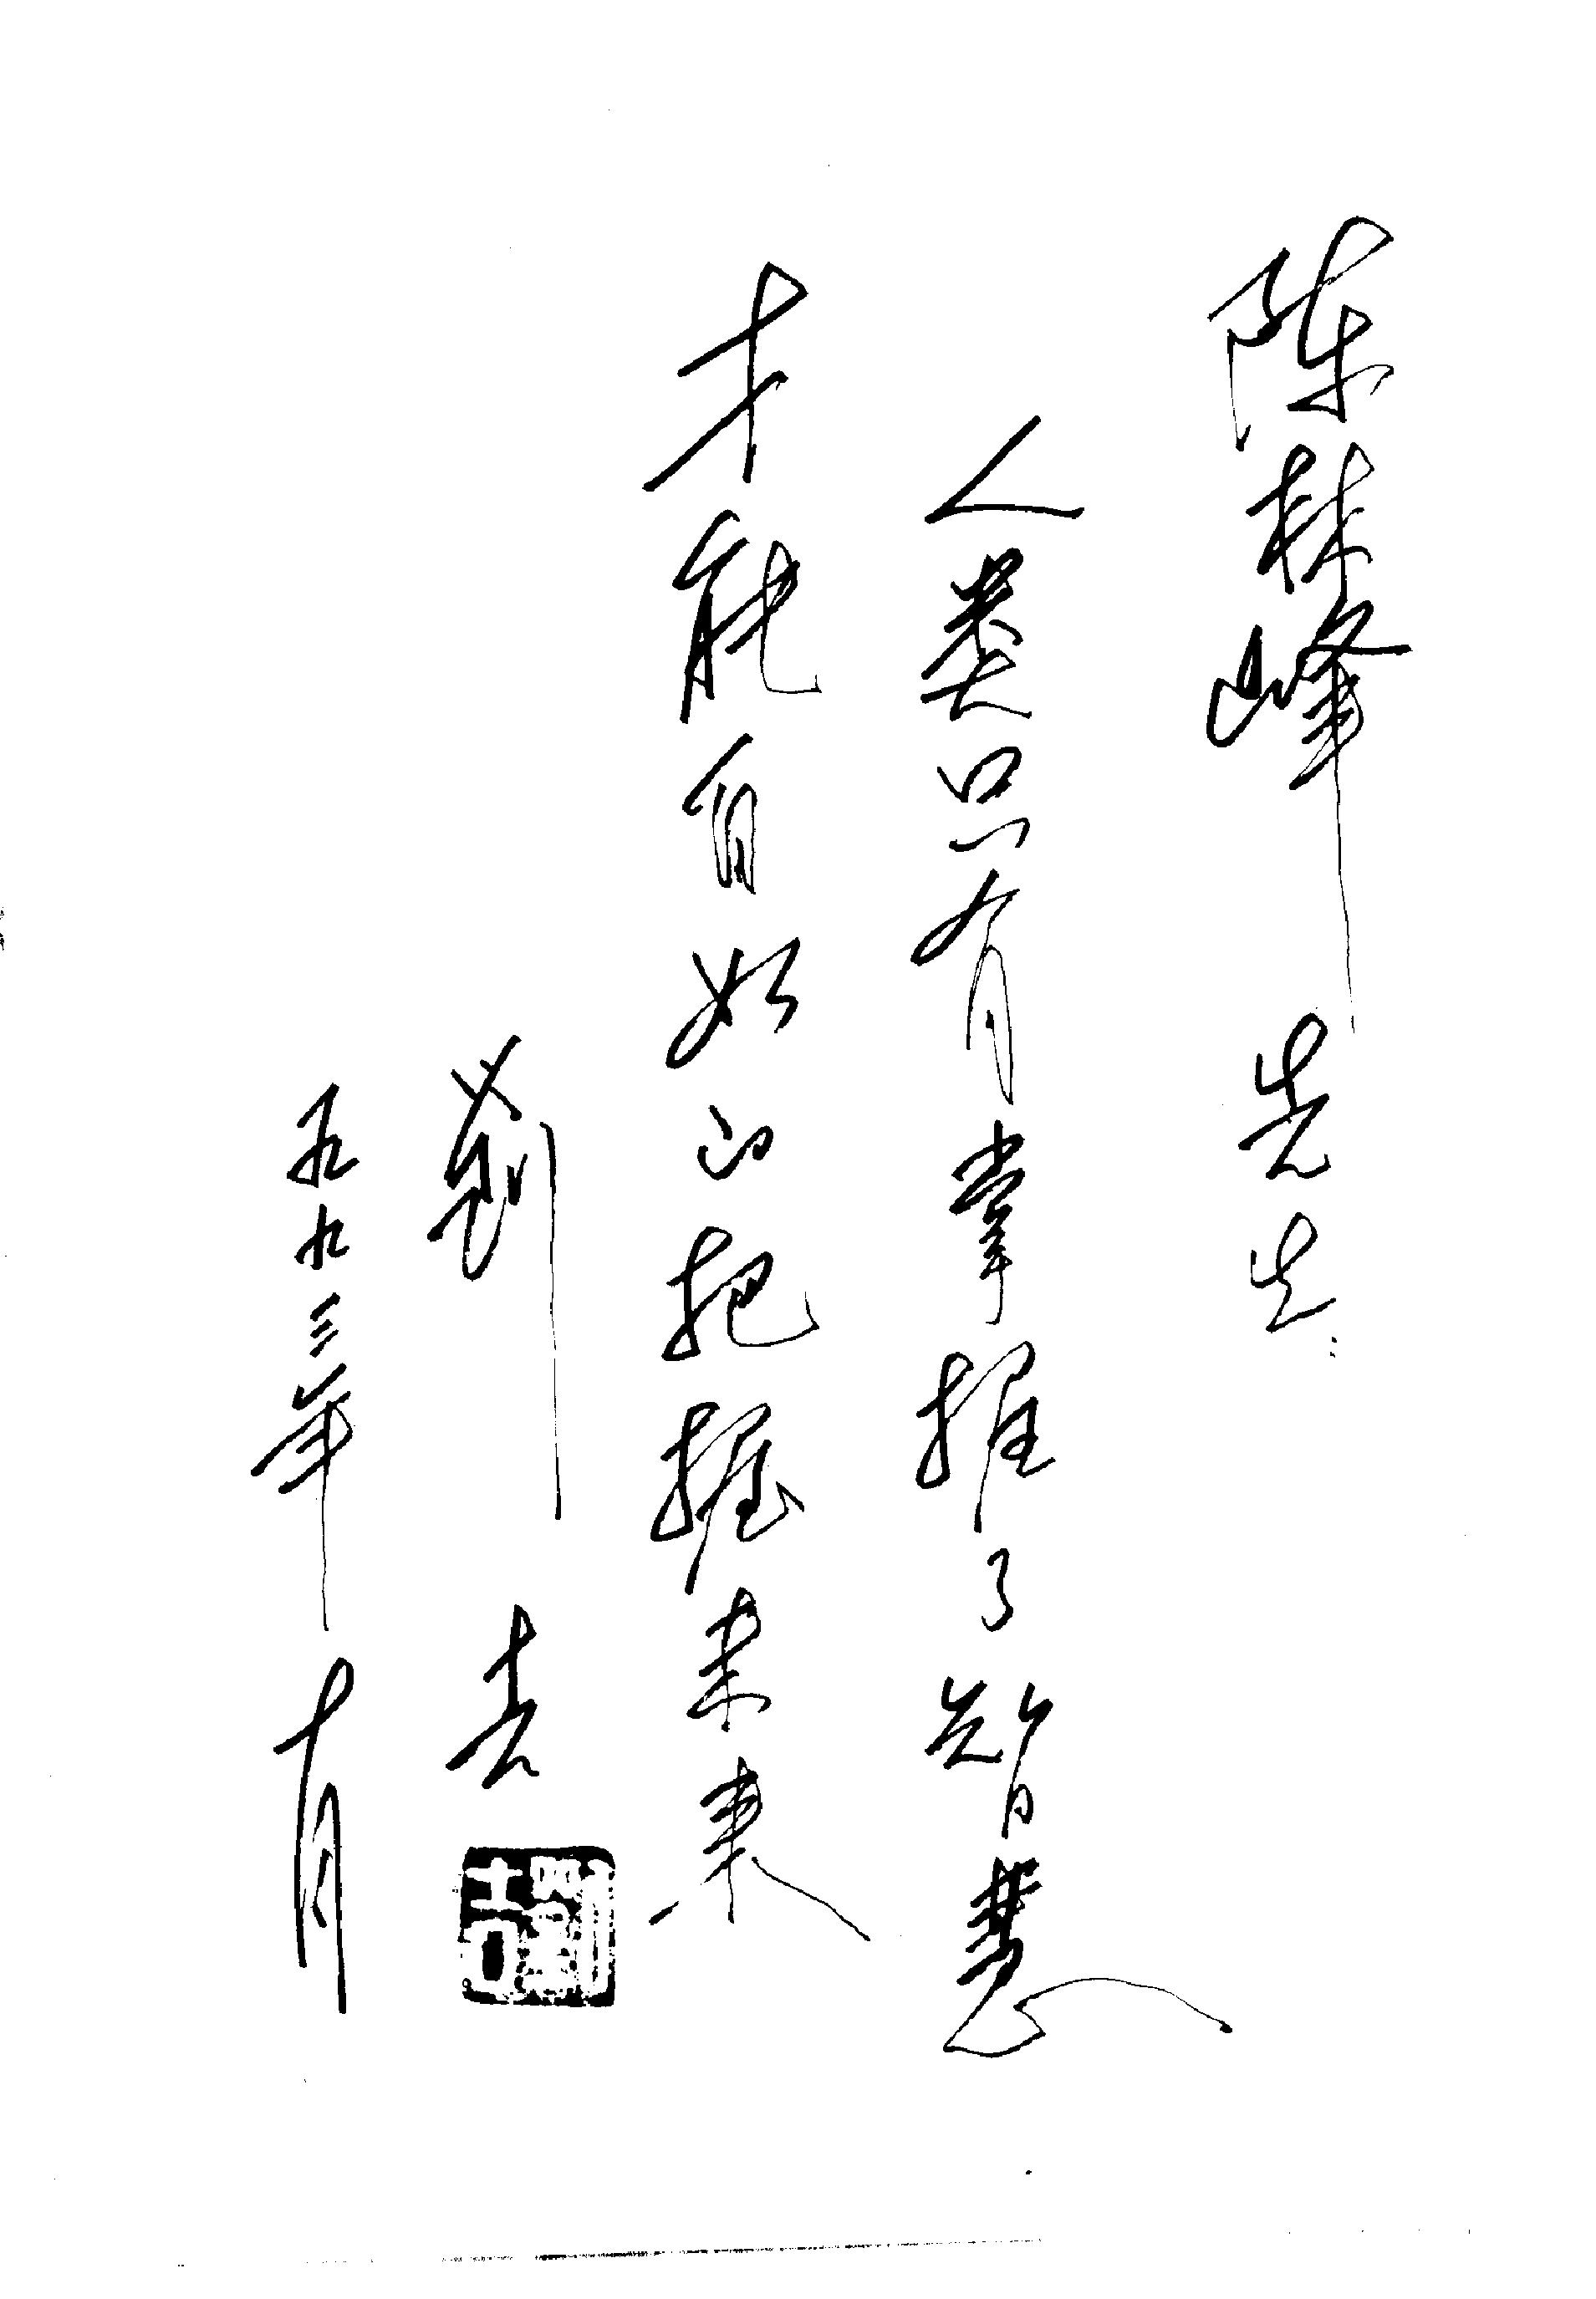 陈林峰 先生:
人类只有掌握了智慧
才能自如的把握未来
劉 吉
一九九三年 十月
劉吉